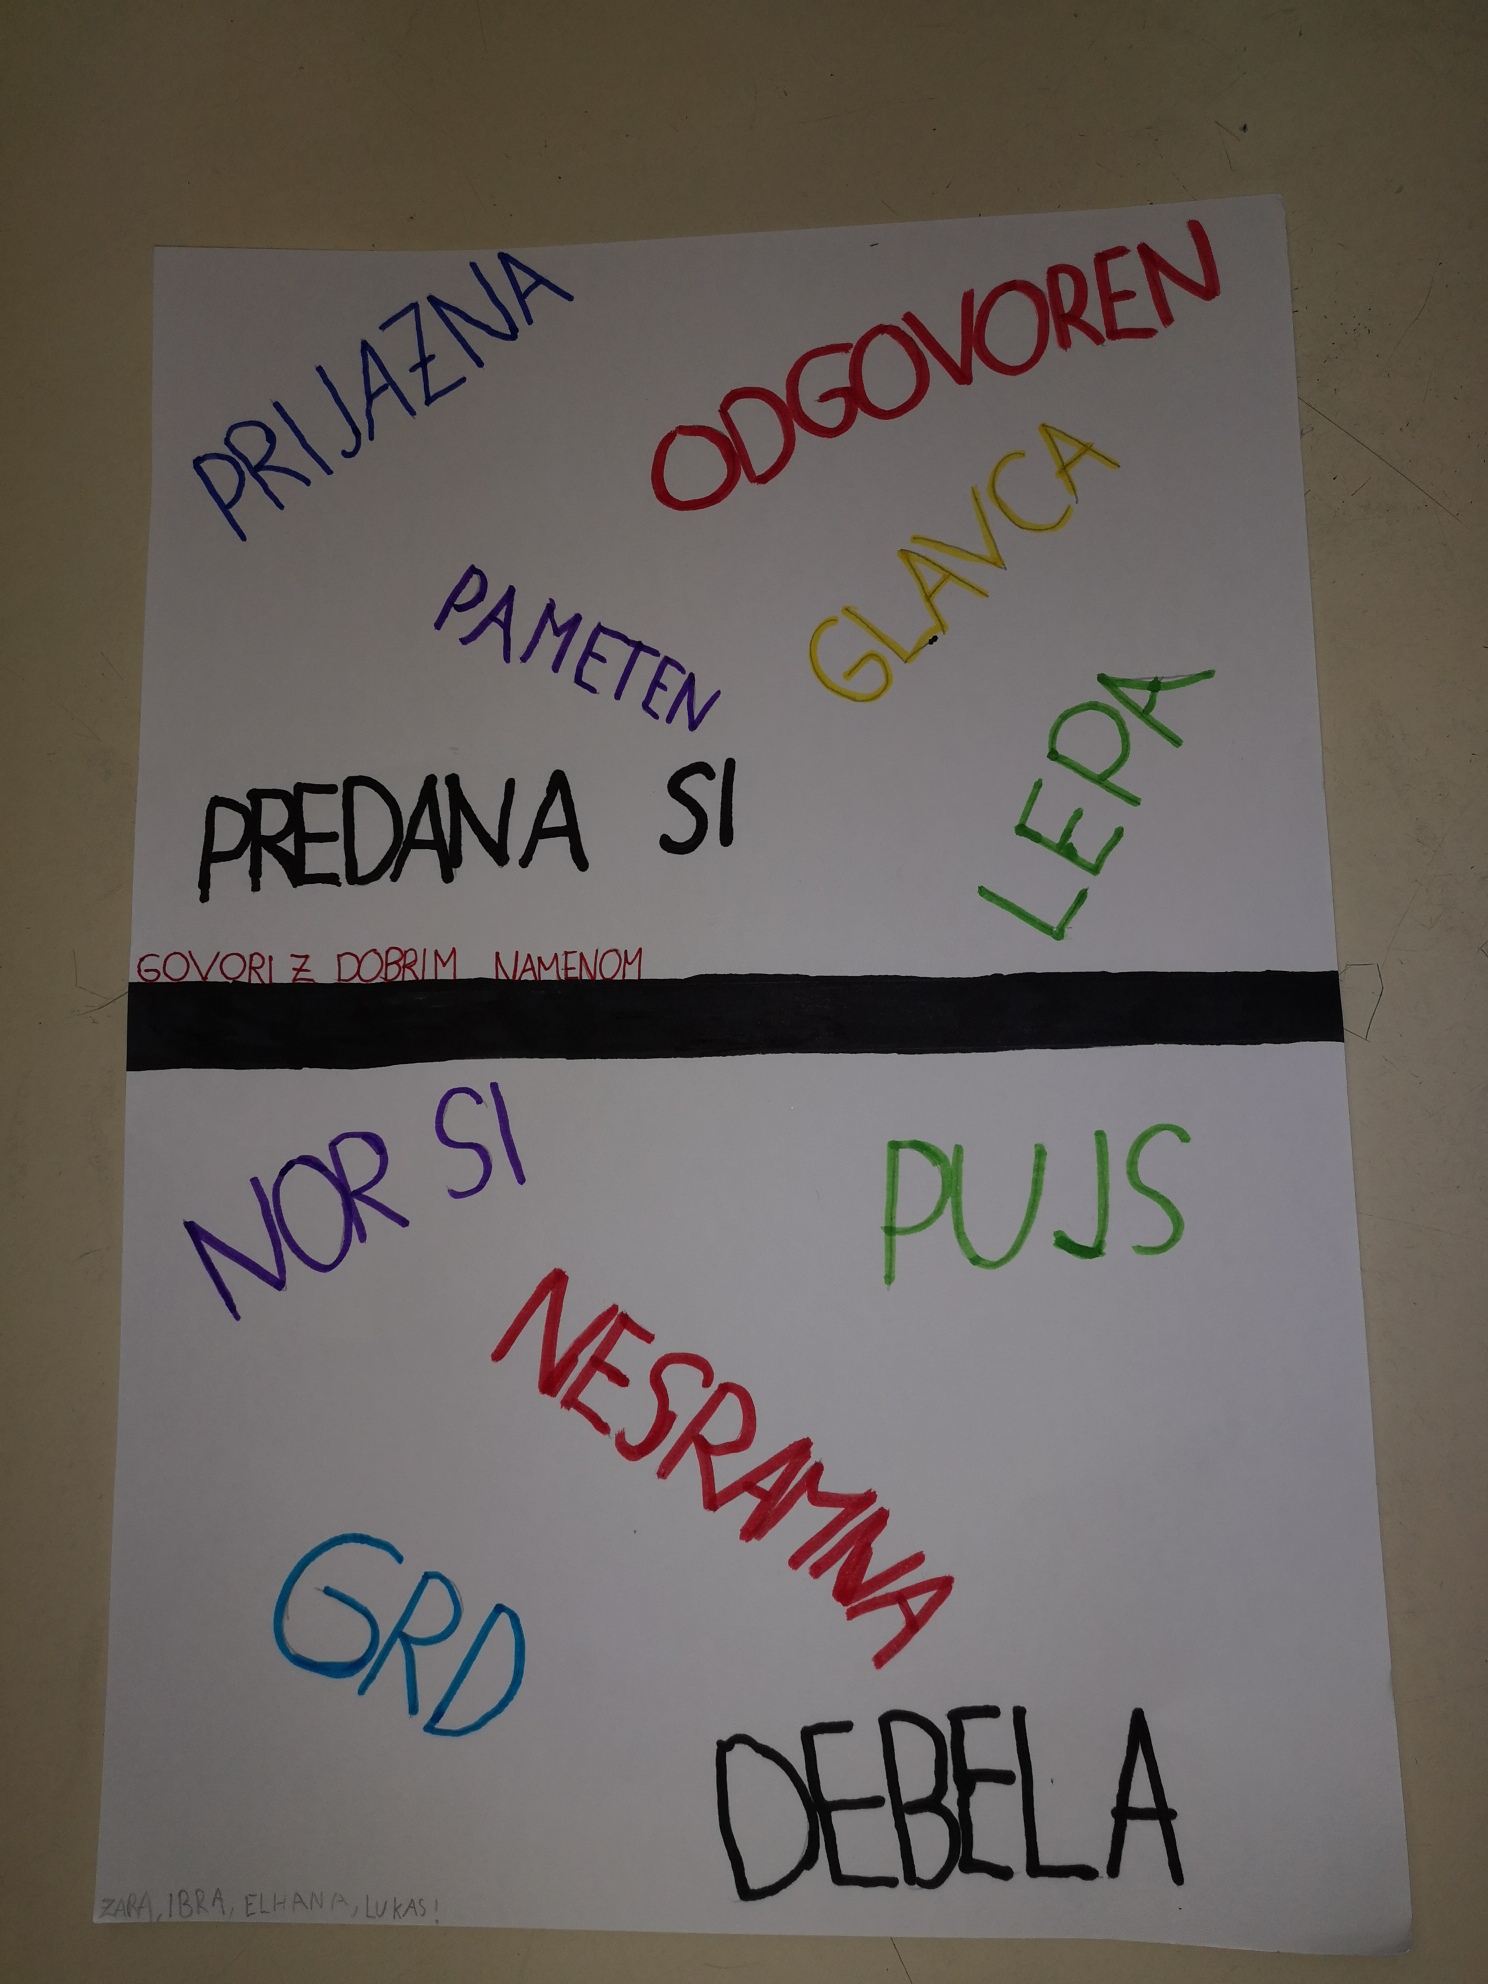 PRIJAZNA
ODGOVOREN
GLAVCA
PAMETEN
LEPA
PREDANA SI
GOVORI Z DOBRIM NAMENOM
NOR SI
PUJS
NESRAMNA
GRD
DEBELA
ZARA, IBRA, ELHANA, LUKAS!